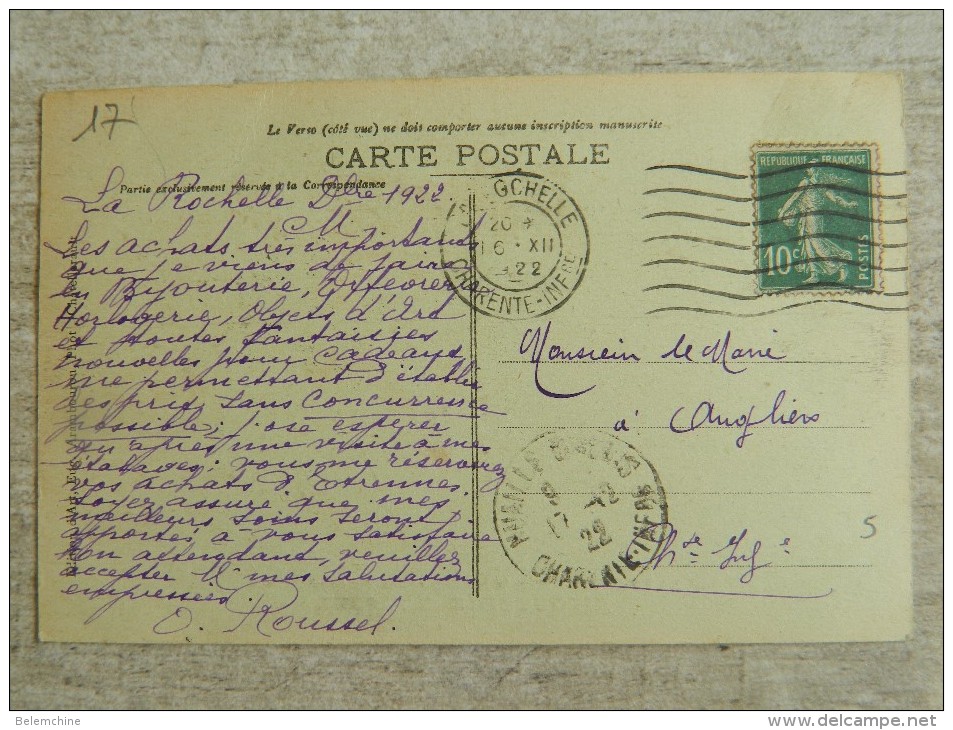 17
Le Verso (côté vue) ne doit comporter aucune inscription manuscrite
CARTE POSTALE
Partie exclusivement réservée à la Correspondance
La Rochelle Dbre 1922
M
Les achats très importants
que je viens de faire
en Bijouterie, Orfèvrerie
Horlogerie, Objets d'Art
et toutes Fantaisies
nouvelles pour cadeaux,
me permettant d'établir
des prix sans concurrence
possible; j'ose espérer
qu'après une visite à mes
étalages; vous me réserverez
vos achats d'Etrennes.
Soyez assuré que mes
meilleurs soins seront
apportés à vous satisfaire
En attendant, veuillez
accepter M mes salutations
empressées.
O. Roussel.
LA ROCHELLE
20
16 · XII
1922
CHARENTE-INFRE
REPUBLIQUE FRANÇAISE
10c
POSTES
Monsieur le Maire
à Angliers
17 -12
22
CHARENTE-INFRE
5
Belemchine
www.delcampe.net